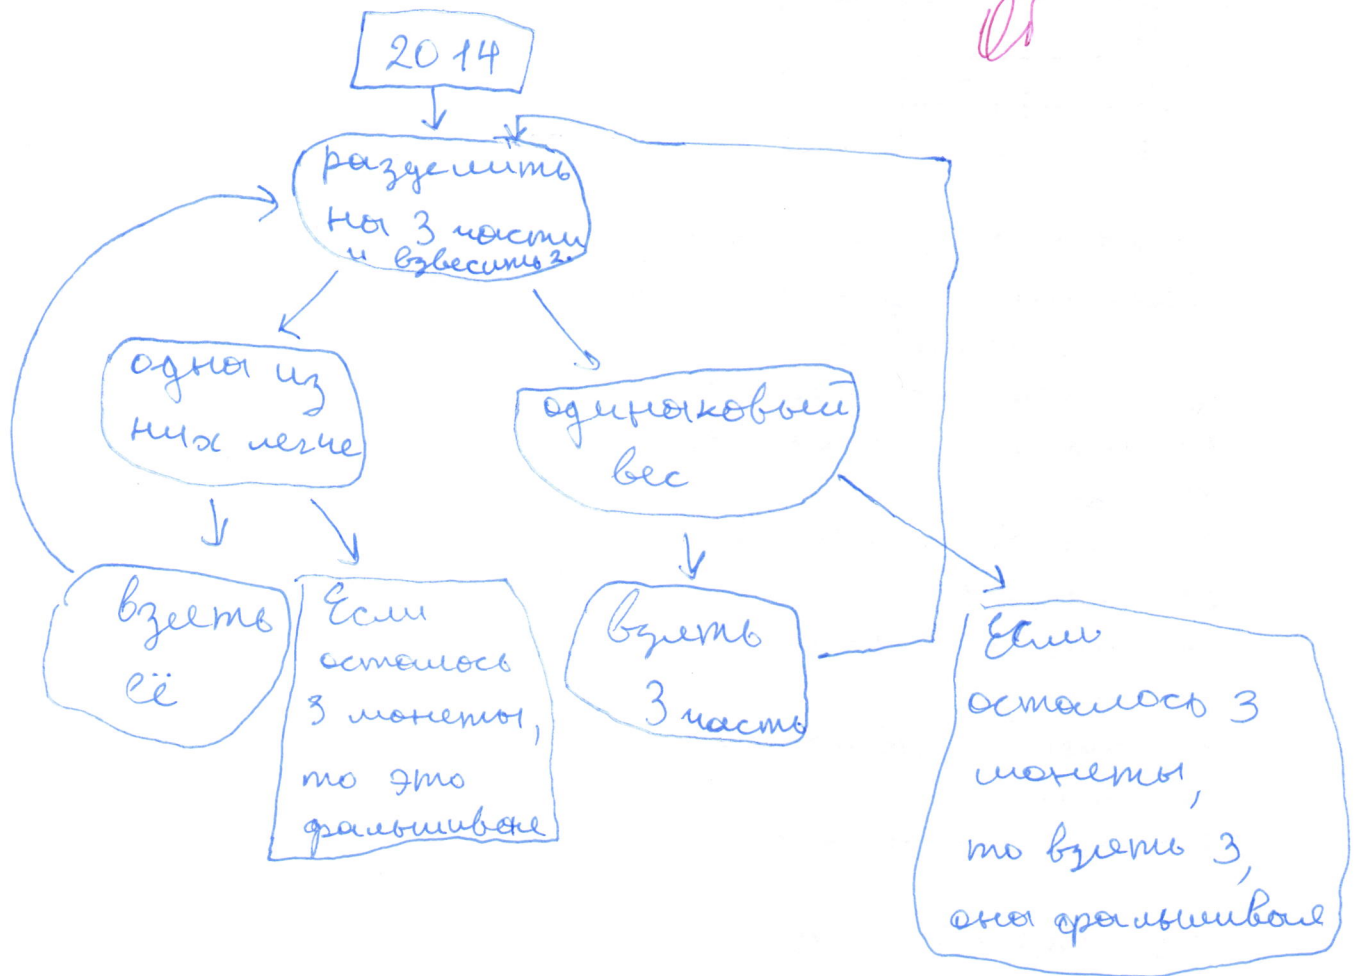 2014
разделить
на 3 части
и взвесить 2.
одна из
них легче
одинаковый
вес
взять
её
Если
осталось
3 монеты,
то это
фальшивая
Взять
3 часть
Если
осталось 3
монеты,
то взять 3,
она фальшивая